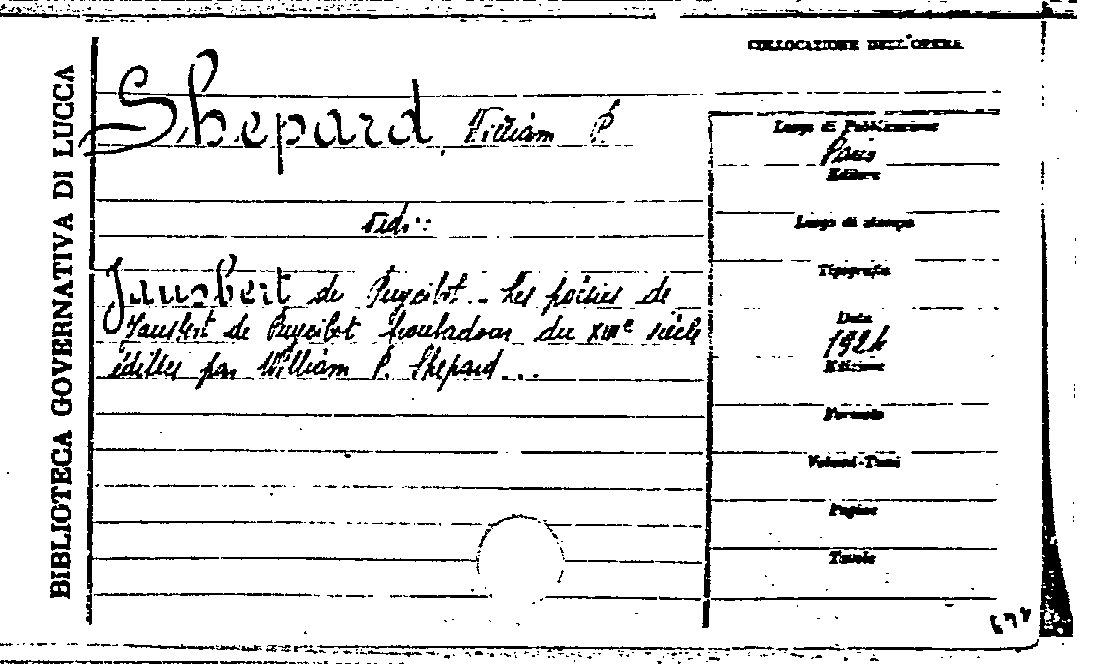 COLLOCAZIONE DELL'OPERA
BIBLIOTECA GOVERNATIVA DI LUCCA
Shepard, William P.
vedi:
Jausbert de Puycibot - Les poésies de
Jausbert de Puycibot troubadour du XIIIe siècle
éditées par William P. Shepard...
Luogo di Pubblicazione
Paris
Editore
Luogo di stampa
Tipografia
Data
1924
Edizione
Formato
Volumi-Tomi
Pagine
Tavole